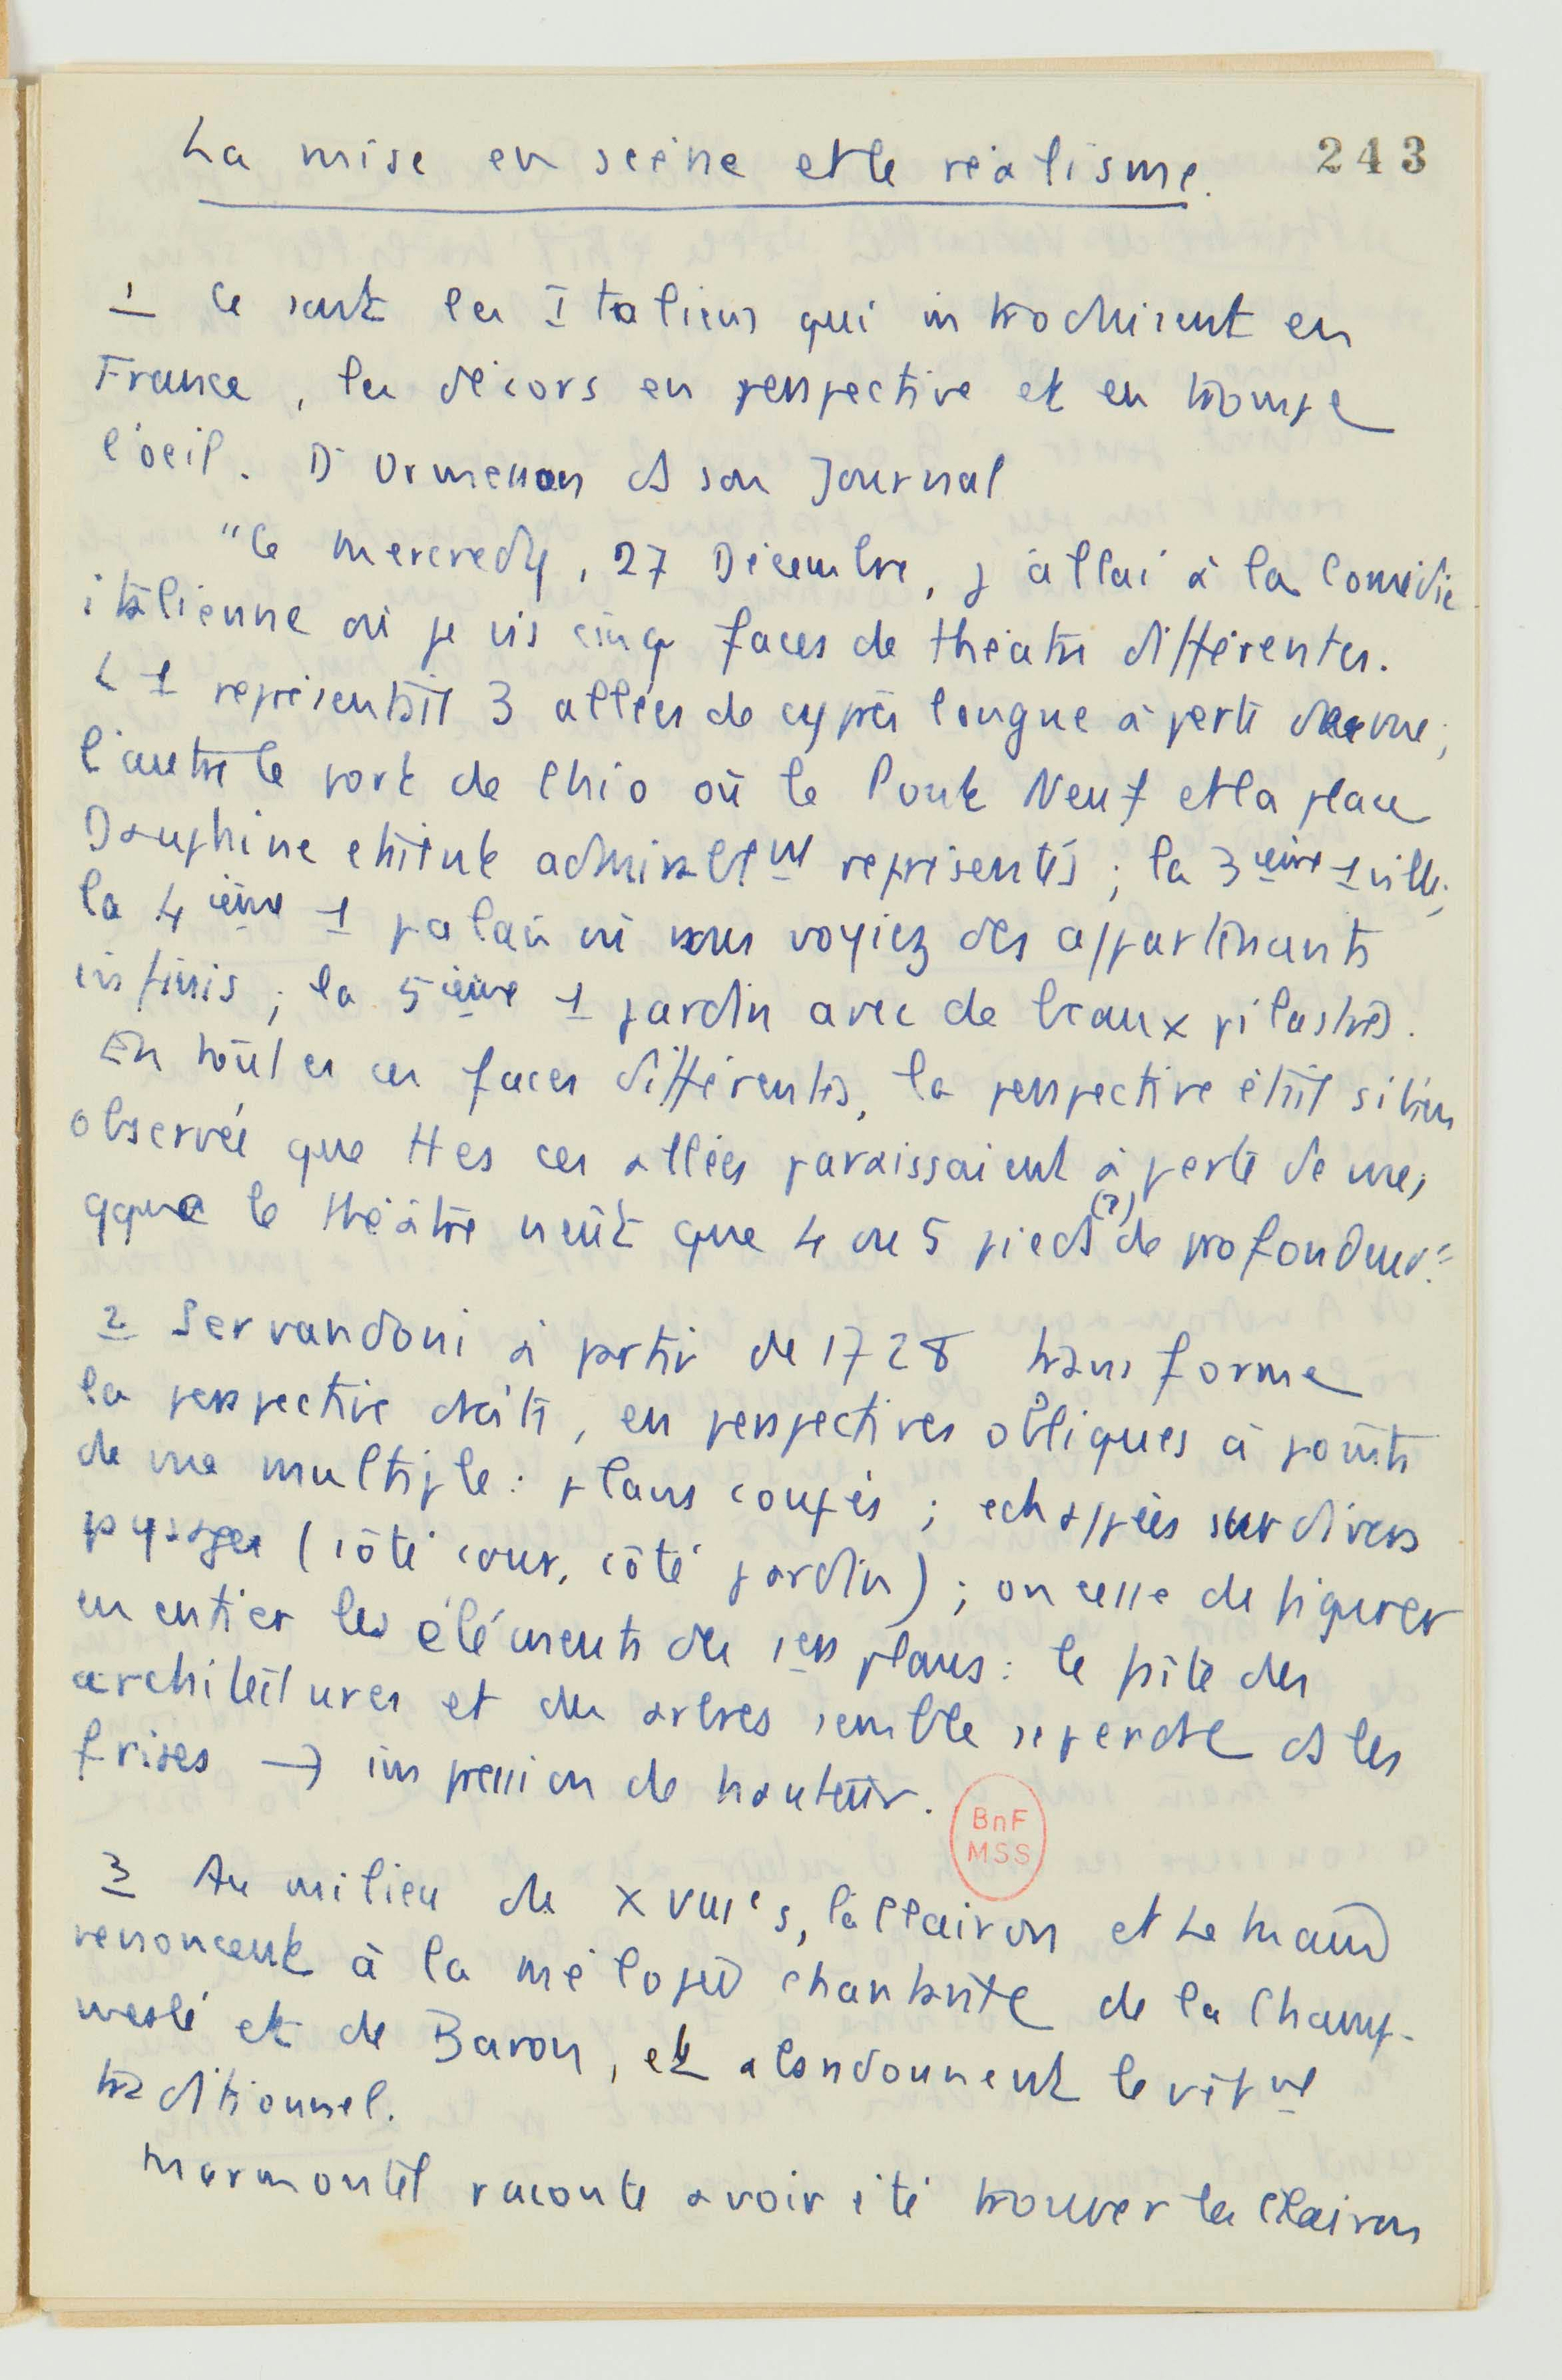 La mise en scène et le réalisme.
243
1 Ce sont les Italiens qui introduisent en
France, les décors en perspective et en trompe
l'oeil. D'Ormesson ds son Journal
"Le mercredy, 27 Décembre, j'allai à la Comédie
italienne où je vis cinq faces de théâtre différentes.
L 1 représentait 3 allées de cyprès longue à perte de vue;
l'autre le port de Chio où le Pont Neuf et la place
Dauphine étaient admirablemt représentés; la 3ième 1 ville;
la 4ième 1 palais où vous voyiez des appartenants
infinis; la 5ième 1 jardin avec de beaux pilastres.
En toutes ces faces différentes, la perspective était si bien
observée que ttes ces allées paraissaient à perte de vue,
qque le théâtre n'eût que 4 ou 5 pieds (?) de profondeur."
2 Servandoni à partir de 1728 transforme
la perspective droite, en perspectives obliques à points
de vue multiple: plans coupés; echappées sur divers
paysages (côté cour, côté jardin); on cesse de figurer
en entier les éléments des 1ers plans: le faîte des
architectures et des arbres semble se perdre ds les
frises → impression de hauteur.
BnF
MSS
3 Au milieu de XVIIIe s, la Clairon et Le Kain
renoncent à la mélopée chantante de la Champ-
meslé et de Baron, et abandonnent le vêtmt
traditionnel.
Marmontel raconte avoir été trouver la Clairon